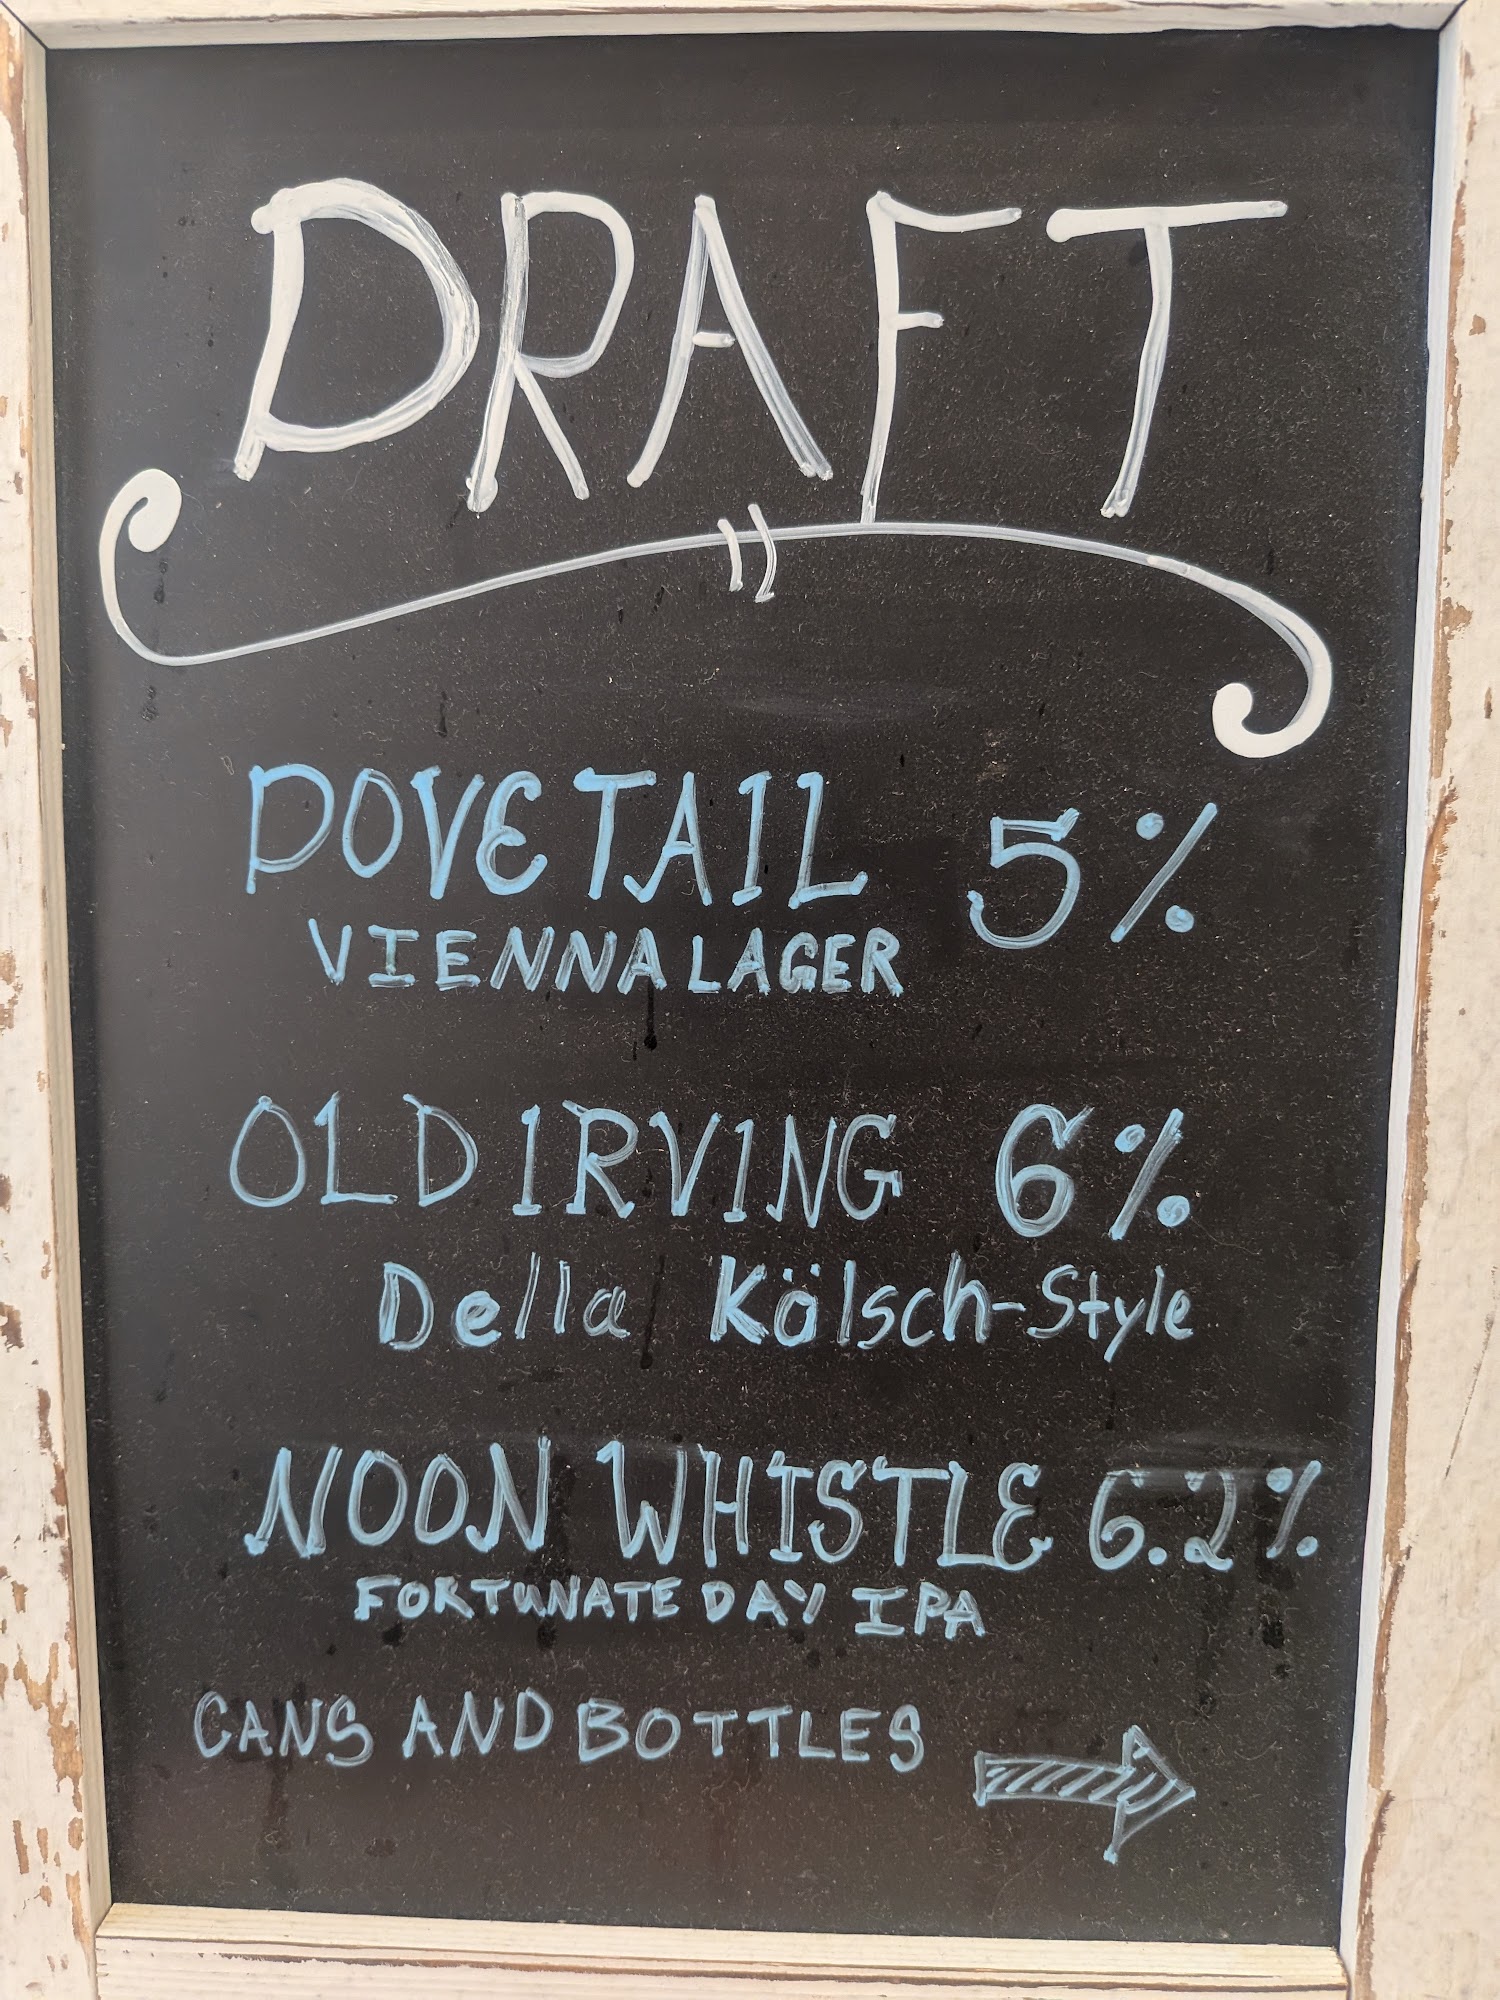 DRAFT
DOVETAIL 5%
VIENNA LAGER
OLD IRVING 6%
Della Kölsch-Style
NOON WHISTLE 6.2%
FORTUNATE DAY IPA
CANS AND BOTTLES